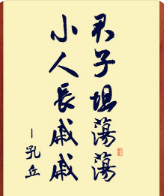 君子坦蕩蕩
小人長戚戚
–孔丘